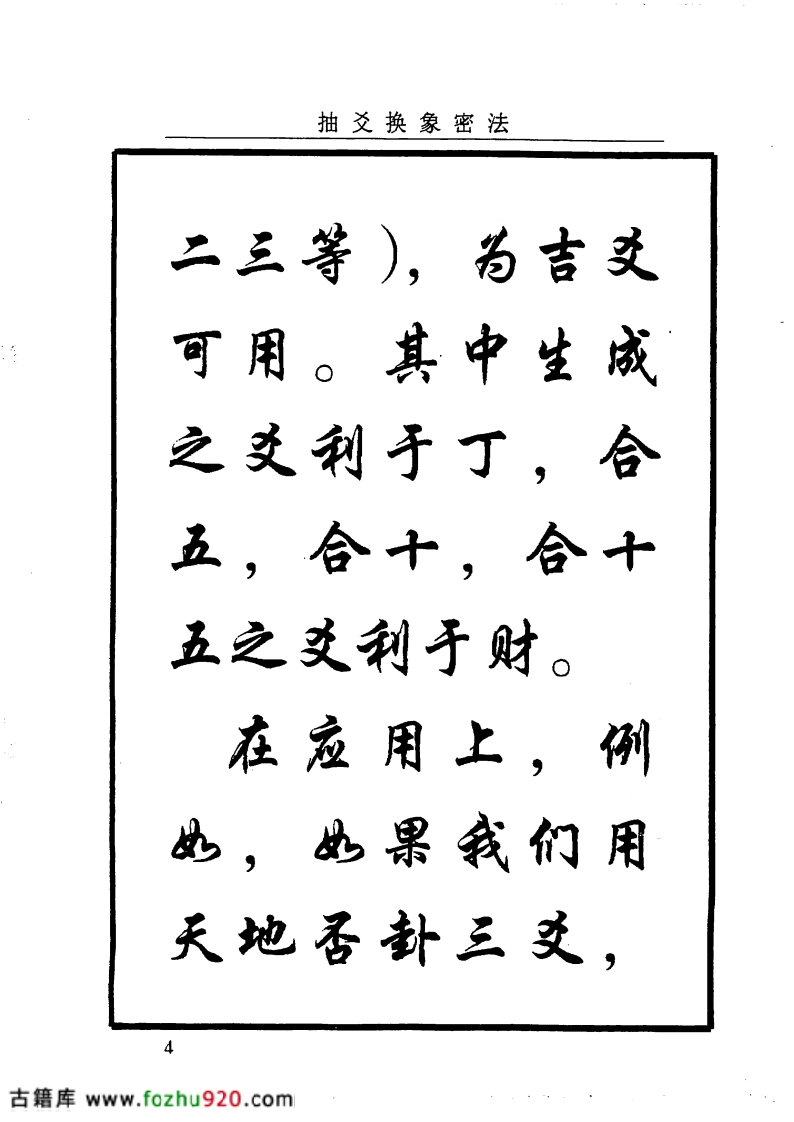 抽爻换象密法
二三等），为吉爻
可用。其中生成
之爻利于丁，合
五，合十，合十
五之爻利于财。
在应用上，例
如，如果我们用
天地否卦三爻，
4
古籍库 www.fozhu920.com